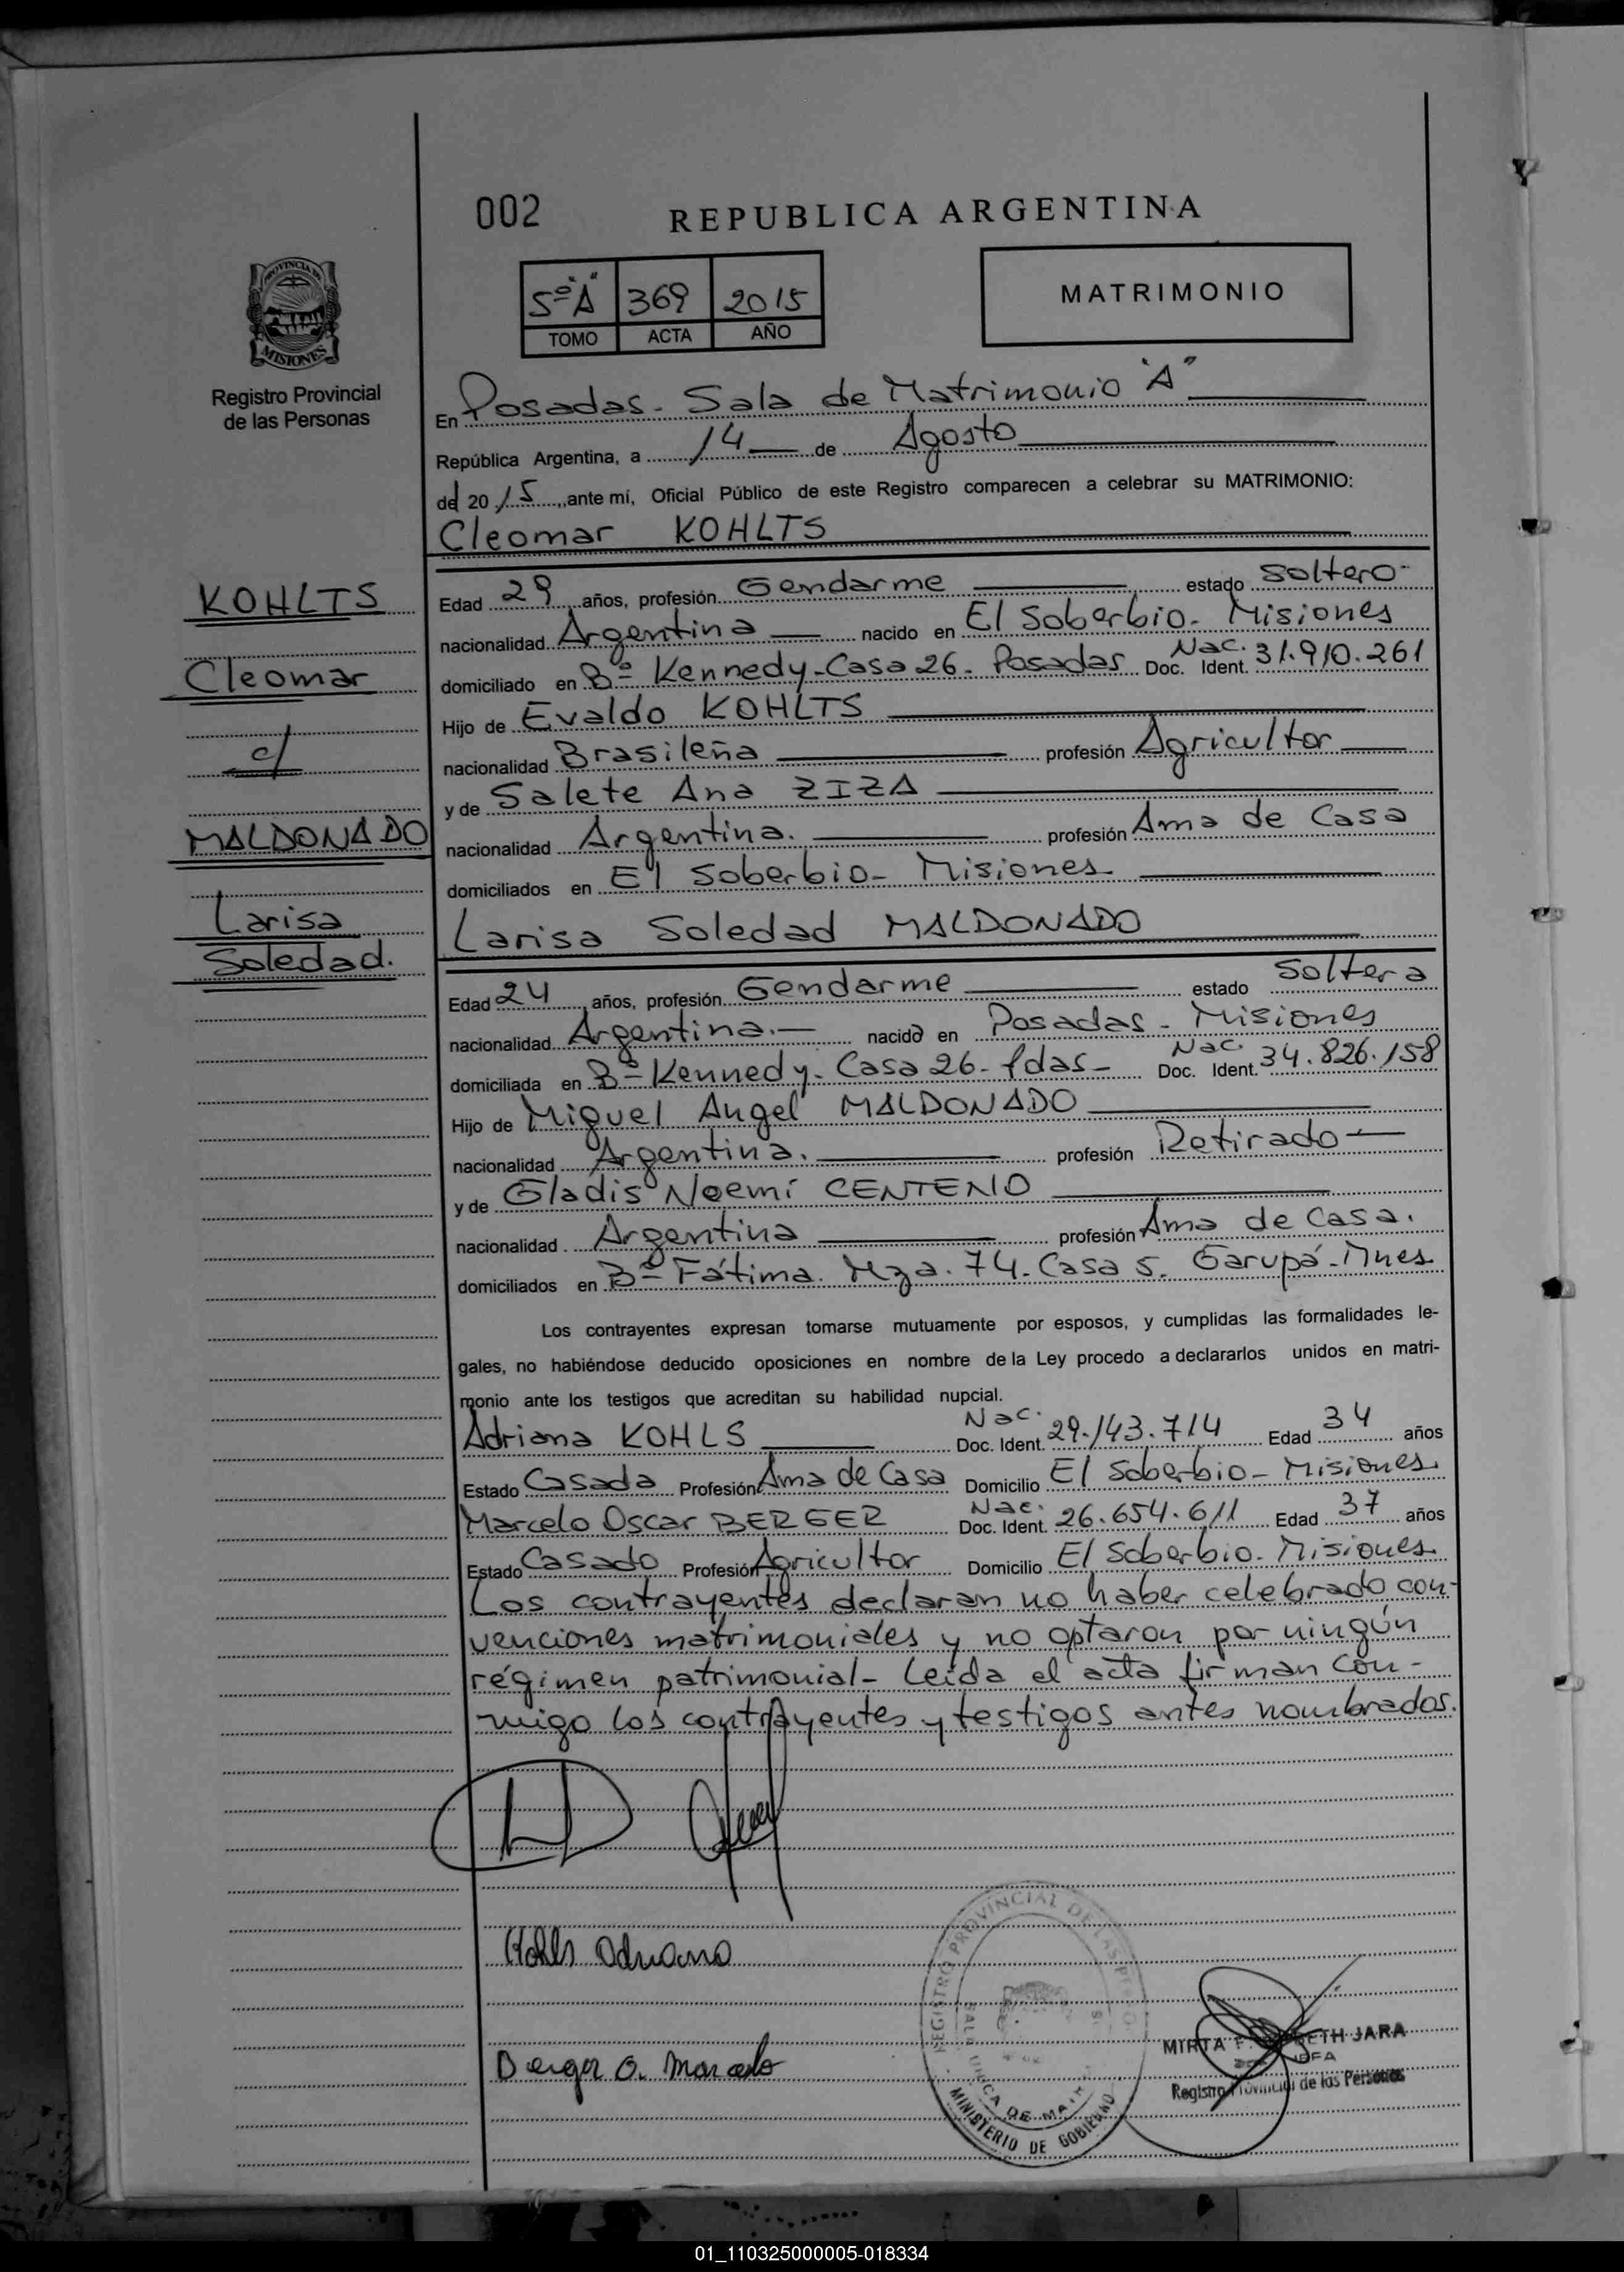 002
REPUBLICA ARGENTINA
PROVINCIA DE
MISIONES
Registro Provincial
de las Personas
5º "A" 369 2015
TOMO ACTA AÑO
MATRIMONIO
En Posadas - Sala de Matrimonio "A"
República Argentina, a 14 de Agosto
del 2015, ante mí, Oficial Público de este Registro comparecen a celebrar su MATRIMONIO:
Cleomar KOHLTS
KOHLTS
Cleomar
c/
MALDONADO
Larisa
Soledad.
Edad 29 años, profesión Gendarme estado Soltero-
nacionalidad Argentina nacido en El Soberbio - Misiones
domiciliado en Bº Kennedy - Casa 26 - Posadas Doc. Nac. Ident. 31.910.261
Hijo de Evaldo KOHLTS
nacionalidad Brasileña profesión Agricultor
y de Salete Ana ZIZA
nacionalidad Argentina. profesión Ama de Casa
domiciliados en El Soberbio - Misiones
Larisa Soledad MALDONADO
Edad 24 años, profesión Gendarme estado Soltera
nacionalidad Argentina.- nacida en Posadas - Misiones
domiciliada en Bº Kennedy - Casa 26 - Pdas - Doc. Nac. Ident. 34.826.158
Hijo de Miguel Angel MALDONADO
nacionalidad Argentina. profesión Retirado
y de Gladis Noemí CENTENO
nacionalidad Argentina profesión Ama de Casa.
domiciliados en Bº Fátima. Mza. 74 - Casa 5. Garupá - Mnes
Los contrayentes expresan tomarse mutuamente por esposos, y cumplidas las formalidades le-
gales, no habiéndose deducido oposiciones en nombre de la Ley procedo a declararlos unidos en matri-
monio ante los testigos que acreditan su habilidad nupcial.
Adriana KOHLS Doc. Nac. Ident. 29.143.714 Edad 34 años
Estado Casada Profesión Ama de Casa Domicilio El Soberbio - Misiones.
Marcelo Oscar BERGER Doc. Nac. Ident. 26.654.611 Edad 37 años
Estado Casado Profesión Agricultor Domicilio El Soberbio - Misiones
Los contrayentes declaran no haber celebrado con-
venciones matrimoniales y no optaron por ningún
régimen patrimonial - Leída el acta firman con-
migo los contrayentes y testigos antes nombrados.
Kohls Adriana
Berger O. Marcelo
REGISTRO PROVINCIAL DE LAS
MINISTERIO DE GOBIERNO
MIRTA JARA
Registro Provincial de las Personas
01_110325000005-018334